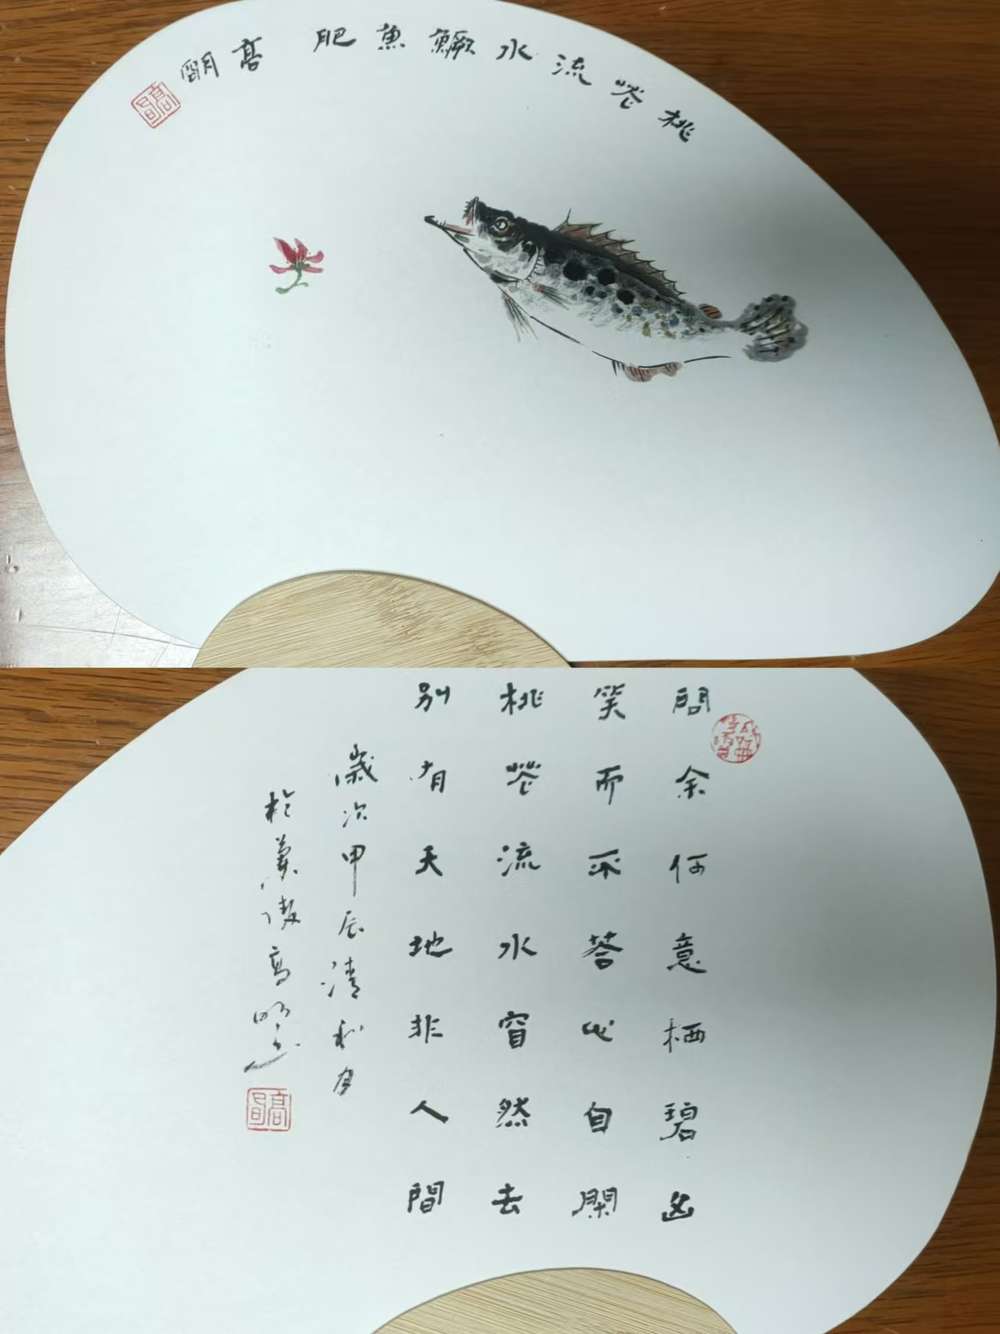 桃花流水鱖魚肥 高明
高明
問余何意栖碧山
笑而不荅心自閑
桃花流水窅然去
別有天地非人間
歲次甲辰清和月
於蘭陵高明
高明